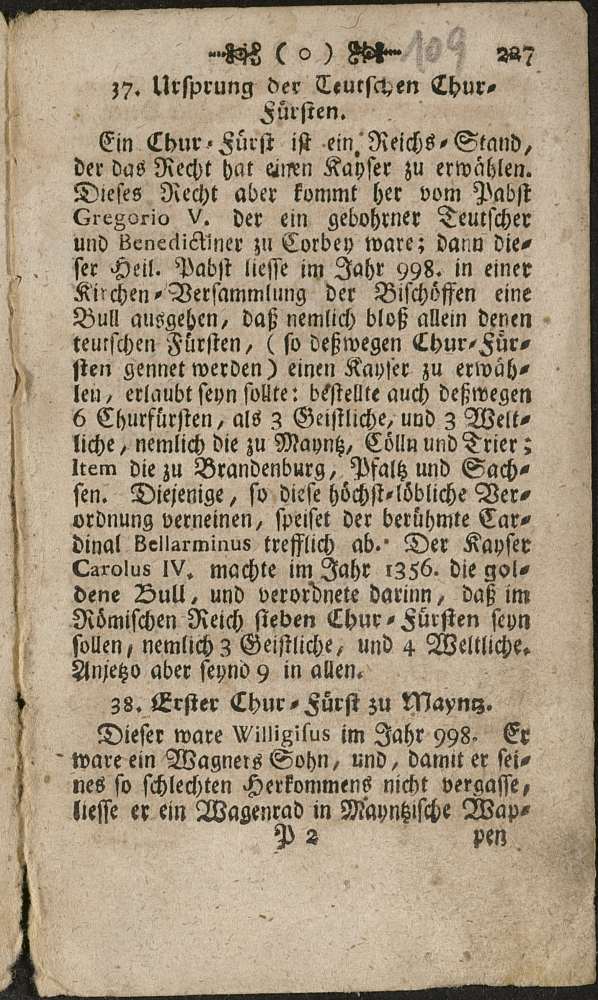 ( o ) 109 227
37. Ursprung der Teutschen Chur-
Fürsten.
Ein Chur-Fürst ist ein Reichs-Stand,
der das Recht hat einen Kayser zu erwählen.
Dieses Recht aber kommt her vom Pabst
Gregorio V. der ein gebohrner Teutscher
und Benedictiner zu Corbey ware; dann die-
ser Heil. Pabst liesse im Jahr 998. in einer
Kirchen-Versammlung der Bischöffen eine
Bull ausgehen, daß nemlich bloß allein denen
teutschen Fürsten, (so deßwegen Chur-Für-
sten gennet werden) einen Kayser zu erwäh-
len, erlaubt seyn sollte: bestellte auch deßwegen
6 Churfürsten, als 3 Geistliche, und 3 Welt-
liche, nemlich die zu Mayntz, Cölln und Trier;
Item die zu Brandenburg, Pfaltz und Sach-
sen. Diejenige, so diese höchst-löbliche Ver-
ordnung verneinen, speiset der berühmte Car-
dinal Bellarminus trefflich ab. Der Kayser
Carolus IV. machte im Jahr 1356. die gol-
dene Bull, und verordnete darinn, daß im
Römischen Reich sieben Chur-Fürsten seyn
sollen, nemlich 3 Geistliche, und 4 Weltliche.
Anjetzo aber seynd 9 in allen.
38. Erster Chur-Fürst zu Mayntz.
Dieser ware Willigisus im Jahr 998. Er
ware ein Wagners Sohn, und, damit er sei-
nes so schlechten Herkommens nicht vergasse,
liesse er ein Wagenrad in Mayntzische Wap-
P 2 pen